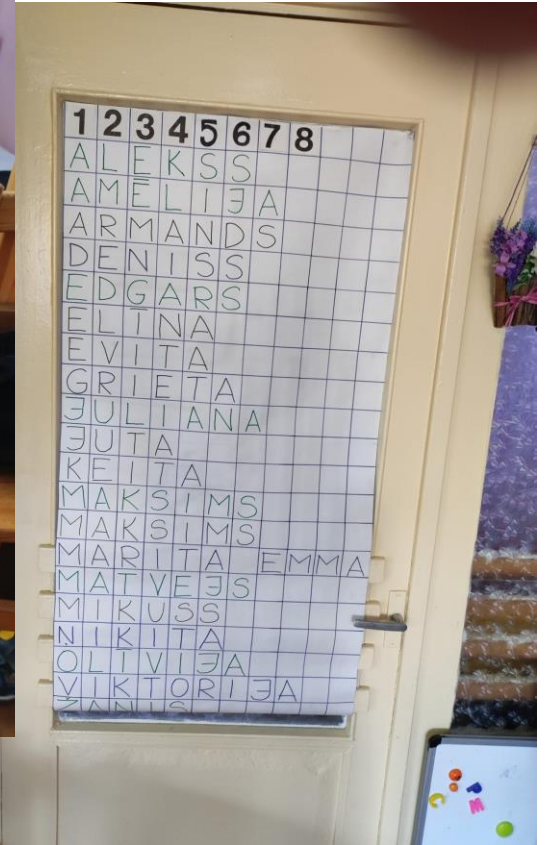 1 2 3 4 5 6 7 8
ALEKSS
AMĒLIJA
ARMANDS
DENISS
EDGARS
ELĪNA
EVITA
GRIETA
JULIANA
JUTA
KEITA
MAKSIMS
MAKSIMS
MARITA EMMA
MATVEJS
MIKUSS
NIKITA
OLĪVIJA
VIKTORIJA